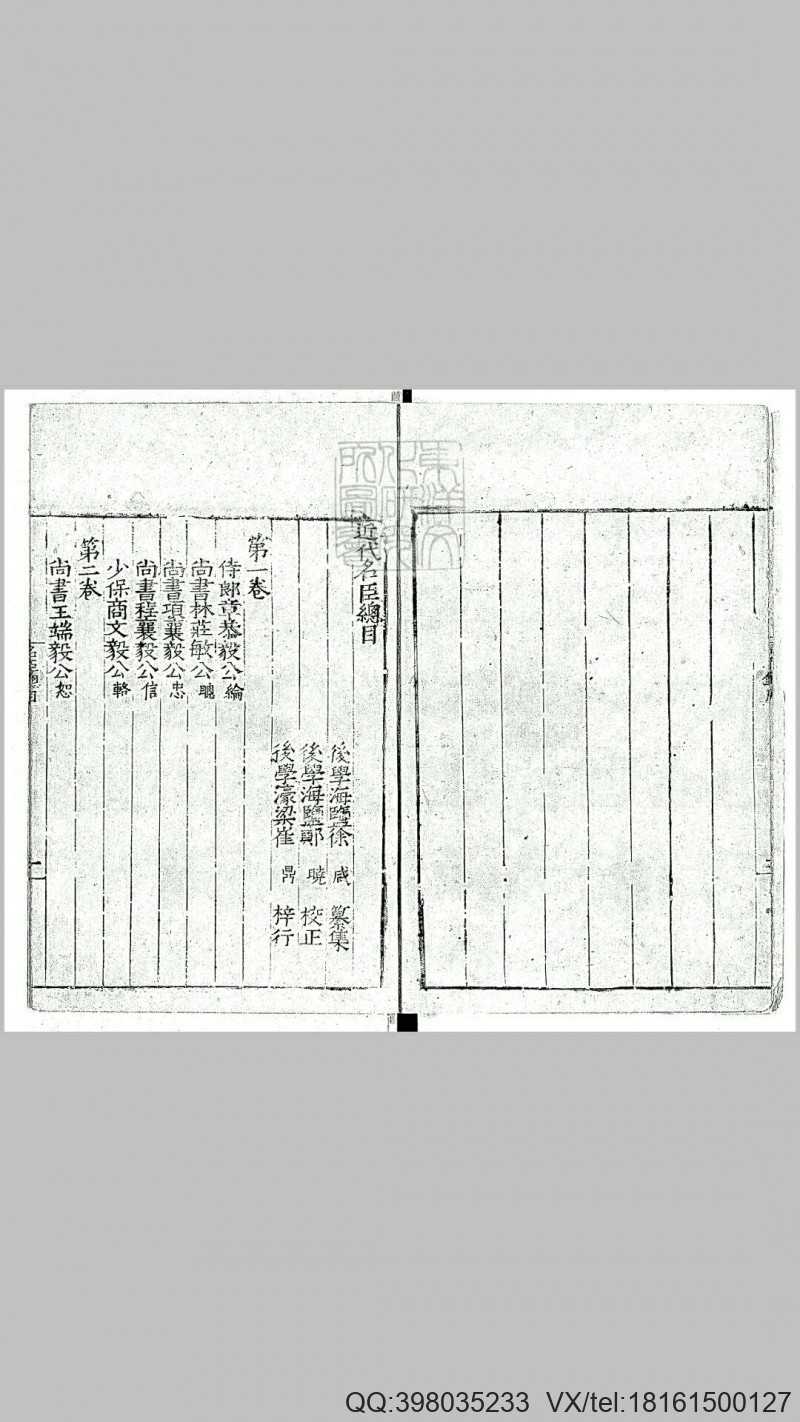 近代名臣總目
後學海鹽徐 咸 纂集
後學海鹽鄭 曉 校正
後學濠梁崔 鼎 梓行
第一卷
侍郎章恭毅公綸
尚書林莊敏公聰
尚書項襄毅公忠
尚書程襄毅公信
少保商文毅公輅
第二卷
尚書王端毅公恕
名臣總目
QQ:398035233 VX/tel:18161500127